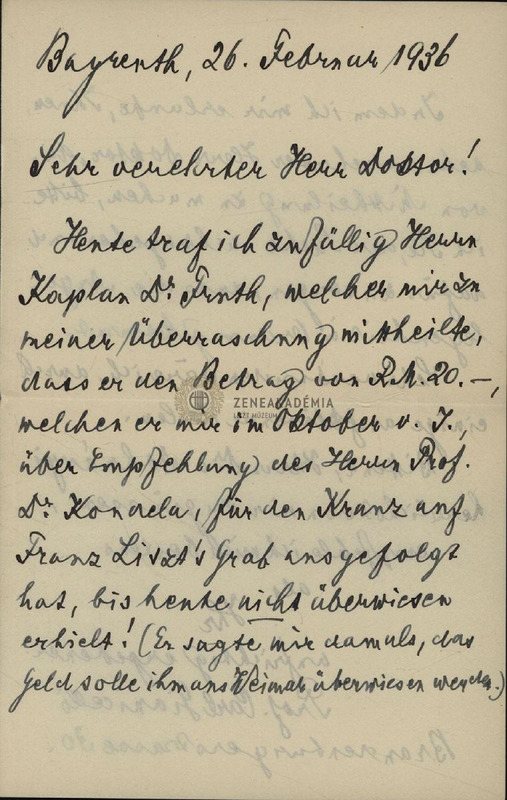 Bayreuth, 26. Februar 1936
Sehr verehrter Herr Doktor!
Heute traf ich zufällig Herrn
Kaplan Dr. Fruth, welcher mir zu
meiner Überraschung mittheilte,
dass er den Betrag von R.M. 20.–,
ZENEAKADÉMIA
LISZT MÚZEUM
welchen er mir im Oktober v. J.,
über Empfehlung des Herrn Prof.
Dr. Kondela, für den Kranz auf
Franz Liszt's Grab ausgefolgt
hat, bis heute nicht überwiesen
erhielt! (Er sagte mir damals, das
Geld solle ihm aus Weimar überwiesen werden.)